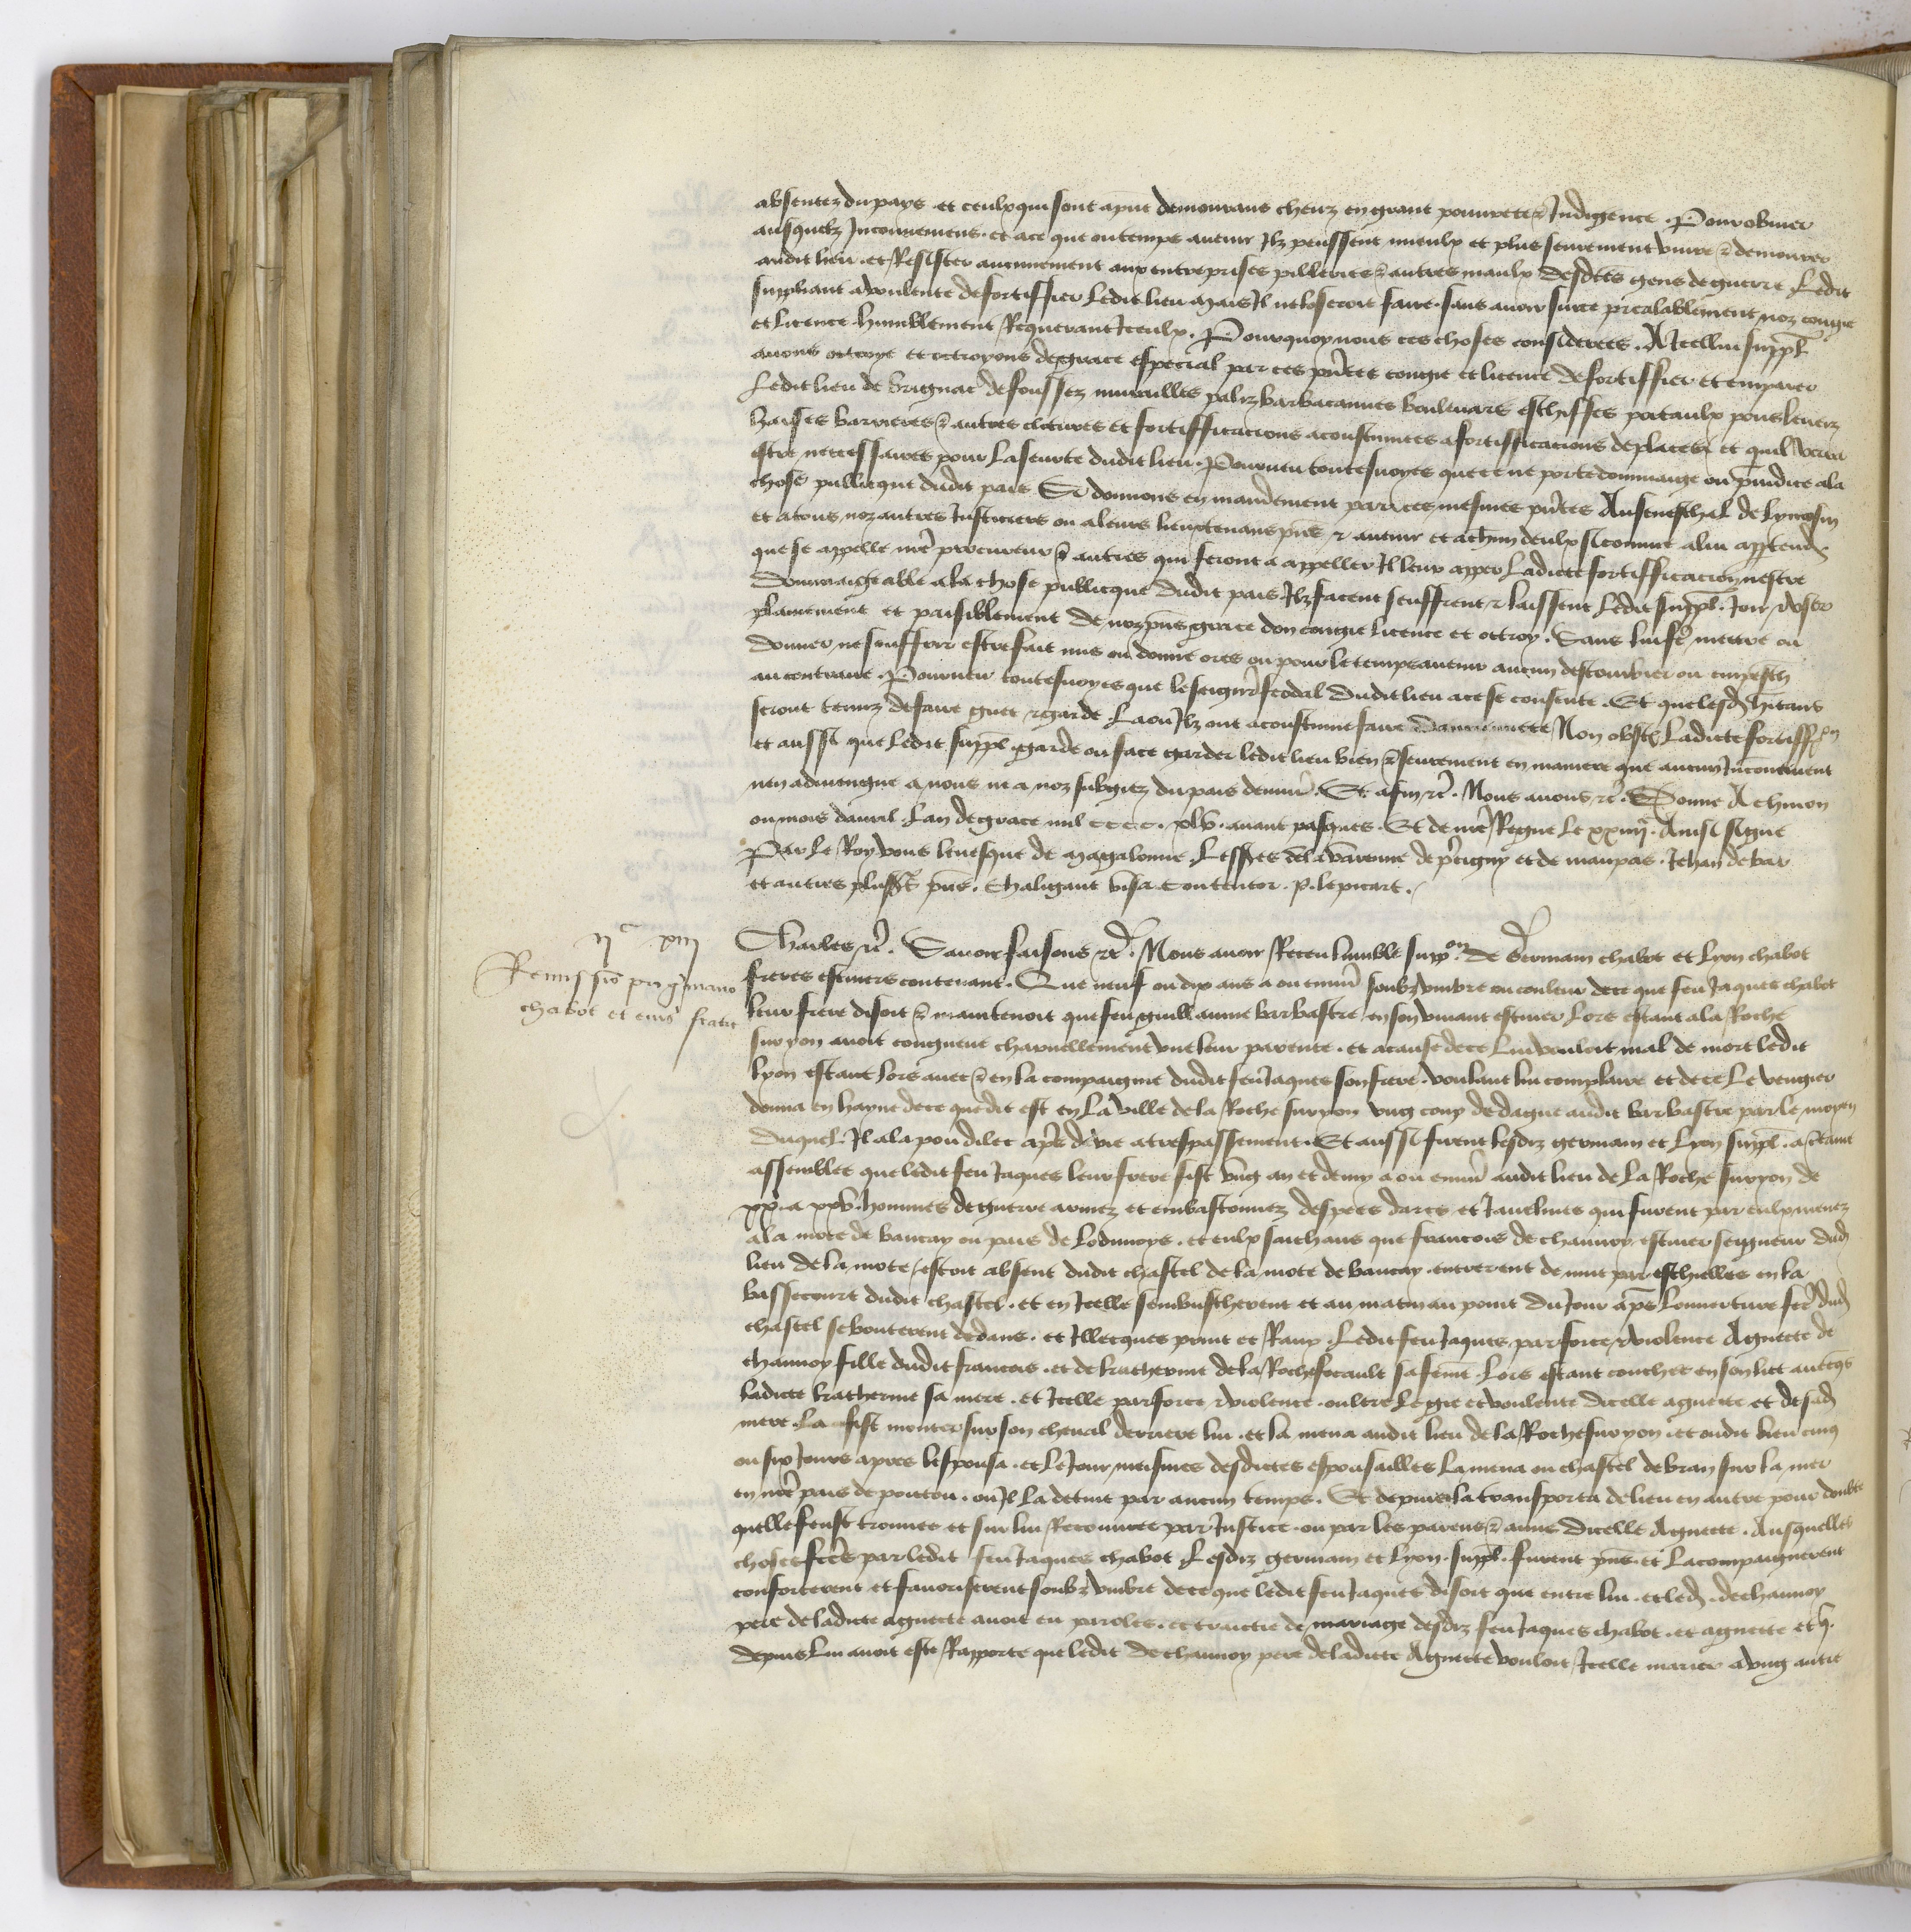 absentez du pays et ceulx qui sont a pnt demourans cheuz en grant pouurete & Indigence . Pour obuier
ausquelz Inconueniens . et a ce que ou temps auenir Ilz peussent mieulx et plus seurement viure & demourer
audit lieu . et Resister aucunement aux entreprises pilleries & autres maulx desdtes gens de guerre Ledit
suppliant a voulente de fortiffier Ledit lieu mais Il ne loseroit faire . sans auoir sur ce prealablement noz congie
et licence humblement Requerant Iceulx . Pourquoy nous ces choses considerees . A Icellui suppl
auons ottroye et ottroyons de grace especial par ces pntes congie et licence de fortiffier et emparer
Ledit lieu de brignac de foussez murailles paliz barbacannes bouleuars eschiffes portaulx pons leueiz
barrieres & autres clotures et fortifficacions acoustumees a fortifficacions de places et quil verra
estre necessaires pour La seurte dudit lieu . Pourueu toutesuoyes que ce ne porte dommaige ou preiudice a la
chose publicque dudit pais Si donnons en mandement par ces mesmes pntes Au seneschal de lymosin
et a tous noz autres Justiciers ou a leurs lieuxtenans pns & auenir et a chun deulx si comme a lui appartendra
que se appelle nre procureur & autres qui seront a appeller Il leur apper Ladicte fortifficacion nestre
dommaigeable a la chose publicque dudit pais Ilz facent seuffrent & laissent Ledit suppl . Joir & vser
plainement et paisiblement de noz pns grace don congie licence et ottroy . Sans lui fe mettre ou
donner ne souffrir estre fait mis ou donne ores ou pour le temps auenir aucun destourbier ou empesch
au contraire . Pourueu toutesuoyes que le seigneur feodal dudit lieu a ce se consente . Et que lesd hitans
seront tenuz de faire guet & garde La ou Ilz ont acoustume faire danciennete Non obst Ladicte fortiffion
et aussi que Ledit suppl . garde ou face garder ledit lieu bien & seurement en maniere que aucun Inconuenient
nen aduiengne a nous ne a noz subgiez du pais denuiron . Et afin &c . Nous auons &c . Donne A chinon
ou mois dauril . Lan de grace mil cccc . xlv . auant pasques . Et de nre Regne le xxiiij . Ainsi signe
Par Le Roy vous leuesque de magalonne . Les sires de la varenne de precigny et de maupas . Jehan de bar
et autres pluss pns . Chaligant visa Contentor . P . le picart .
ijc xiij
Remissio pro germano
chabot et eius fratre
Charles &c . Sauoir faisons &c . Nous auoir Receu lumble suppon de Germain chabot et Lyon chabot
freres escuiers contenant . Que neuf ou dix ans a ou enuiron soubz vmbre ou couleur de ce que feu Jaques chabot
leur frere disoit & maintenoit que feu guillaume barbastre en son viuant escuier Lors estant a la Roche
sur yon auoit congneue charnellement vne leur parente . et a cause de ce Lui vouloit mal de mort ledit
Lyon estant lors auec & en la compaignie dudit feu Jaques son frere . voulant lui complaire et de ce Le vengier
donna en hayne de ce que dit est en La ville de la Roche sur yon vng coup de dague audit barbastre par le moyen
duquel . Il ala pou dilec apres de vie a trespassement . Et aussi furent lesdiz germain et Lyon suppl . a certaine
assemblee que ledit feu Jaques leur frere fist vng an et demy a ou enuiron audit lieu de La Roche sur yon de
xx . a xxv . hommes de guerre armez et embastonnez despees darcs et Jauelines qui furent par eulx menez
a la mote de baucay ou pais de Lodunoys . et eulx saichans que francois de chaunoy escuier seigneur dud
lieu de la mote estoit absent dudit chastel de la mote de baucay . entrerent de nuit par eschielles en la
bassecourt dudit chastel . et en Icelle sembuscherent et au matin au point du Jour apres Louuerture fete dud
chastel se bouterent dedans . et Illecques print et Rauy . Ledit feu Jaques par force & violence Agnette de
chaunoy fille dudit francois . et de katherine de la Rochefocault sa feme Lors estant couchee en son lict auecqs
ladicte katherine sa mere . et Icelle par force & violence oultre Le gre et voulente dicelle agnette et de sad
mere La fist monter sur son cheual derriere lui . et la mena audit lieu de la Roche sur yon . et oudit lieu cinq
ou six Jours apres lespousa . et Le Jour meismes desdictes espousailles La mena ou chastel de bran sur la mer
en nre pais de poitou . ou Il La detint par aucun temps . Et depuis la transporta de lieu en autre pour doubte
quelle feust trouuee et sur lui Recouuree par Justice . ou par les parens & amis dicelle Agnette . Ausquelles
choses fetes par ledit feu Jaques chabot Lesdiz germain et Lyon . suppl . furent pns . et Lacompaignerent
conforterent et fauoriserent soubz vmbre de ce que ledit feu Jaques disoit que entre lui . et led . de chaunoy
pere de ladicte agnette auoit eu paroles . et traictie de mariage desdiz feu Jaques chabot . et agnette et q.
depuis Lui auoit este Rapporte que ledit de chaunoy pere de ladicte Agnette vouloit Icelle marier a vng autre